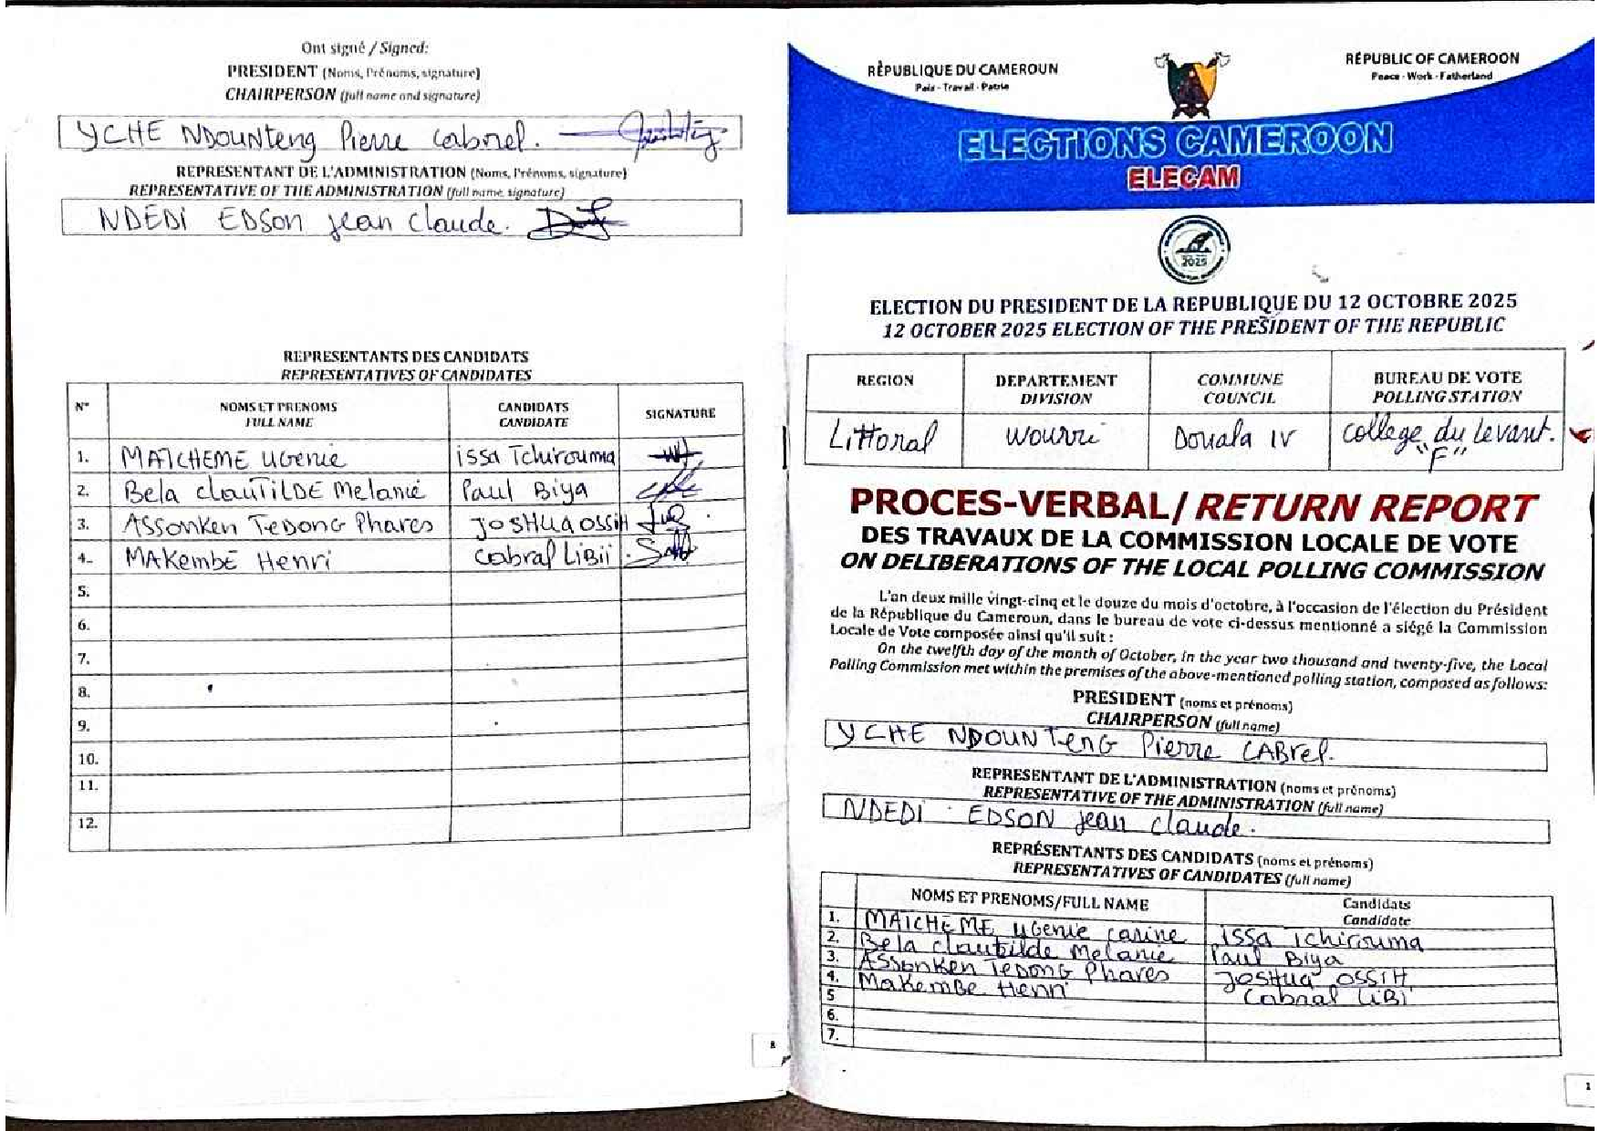 Ont signé / Signed:
PRESIDENT (Noms, Prénoms, signature)
CHAIRPERSON (full name and signature)
YCHE NDOUNTENG Pierre Cabrel.
REPRESENTANT DE L'ADMINISTRATION (Noms, Prénoms, signature)
REPRESENTATIVE OF THE ADMINISTRATION (full name, signature)
NDEDI EDSON Jean Claude.
REPRESENTANTS DES CANDIDATS
REPRESENTATIVES OF CANDIDATES
N° NOMS ET PRENOMS CANDIDATS SIGNATURE
FULL NAME CANDIDATE
1. MATCHEME UGENIE issa Tchirouma
2. Bela CLAUTILDE Melanie Paul Biya
3. ASSONKEN TEDONG Phares JOSHUA OSSIH
4. MAKEMBE Henri Cabral LiBii
5.
6.
7.
8.
9.
10.
11.
12.
8
RÉPUBLIQUE DU CAMEROUN
Paix - Travail - Patrie
REPUBLIC OF CAMEROON
Peace - Work - Fatherland
ELECTIONS CAMEROON
ELECAM
2025
ELECTION DU PRESIDENT DE LA REPUBLIQUE DU 12 OCTOBRE 2025
12 OCTOBER 2025 ELECTION OF THE PRESIDENT OF THE REPUBLIC
REGION DEPARTEMENT COMMUNE BUREAU DE VOTE
DIVISION COUNCIL POLLING STATION
Littoral Wouri Douala IV college du Levant.
"F"
PROCES-VERBAL/ RETURN REPORT
DES TRAVAUX DE LA COMMISSION LOCALE DE VOTE
ON DELIBERATIONS OF THE LOCAL POLLING COMMISSION
L'an deux mille vingt-cinq et le douze du mois d'octobre, à l'occasion de l'élection du Président
de la République du Cameroun, dans le bureau de vote ci-dessus mentionné a siégé la Commission
Locale de Vote composée ainsi qu'il suit :
On the twelfth day of the month of October, in the year two thousand and twenty-five, the Local
Polling Commission met within the premises of the above-mentioned polling station, composed as follows:
PRESIDENT (noms et prénoms)
CHAIRPERSON (full name)
YCHE NDOUNTENG Pierre CABrel.
REPRESENTANT DE L'ADMINISTRATION (noms et prénoms)
REPRESENTATIVE OF THE ADMINISTRATION (full name)
NDEDI EDSON Jean Claude.
REPRÉSENTANTS DES CANDIDATS (noms et prénoms)
REPRESENTATIVES OF CANDIDATES (full name)
NOMS ET PRENOMS/FULL NAME Candidats
Candidate
1. MATCHEME UGenie Carine issa Tchirouma
2. Bela Clautilde Melanie Paul Biya
3. ASSONKEN TEDONG Phares JOSHUA OSSIH
4. Makembe Henri Cabral LiBi
5
6.
7.
1